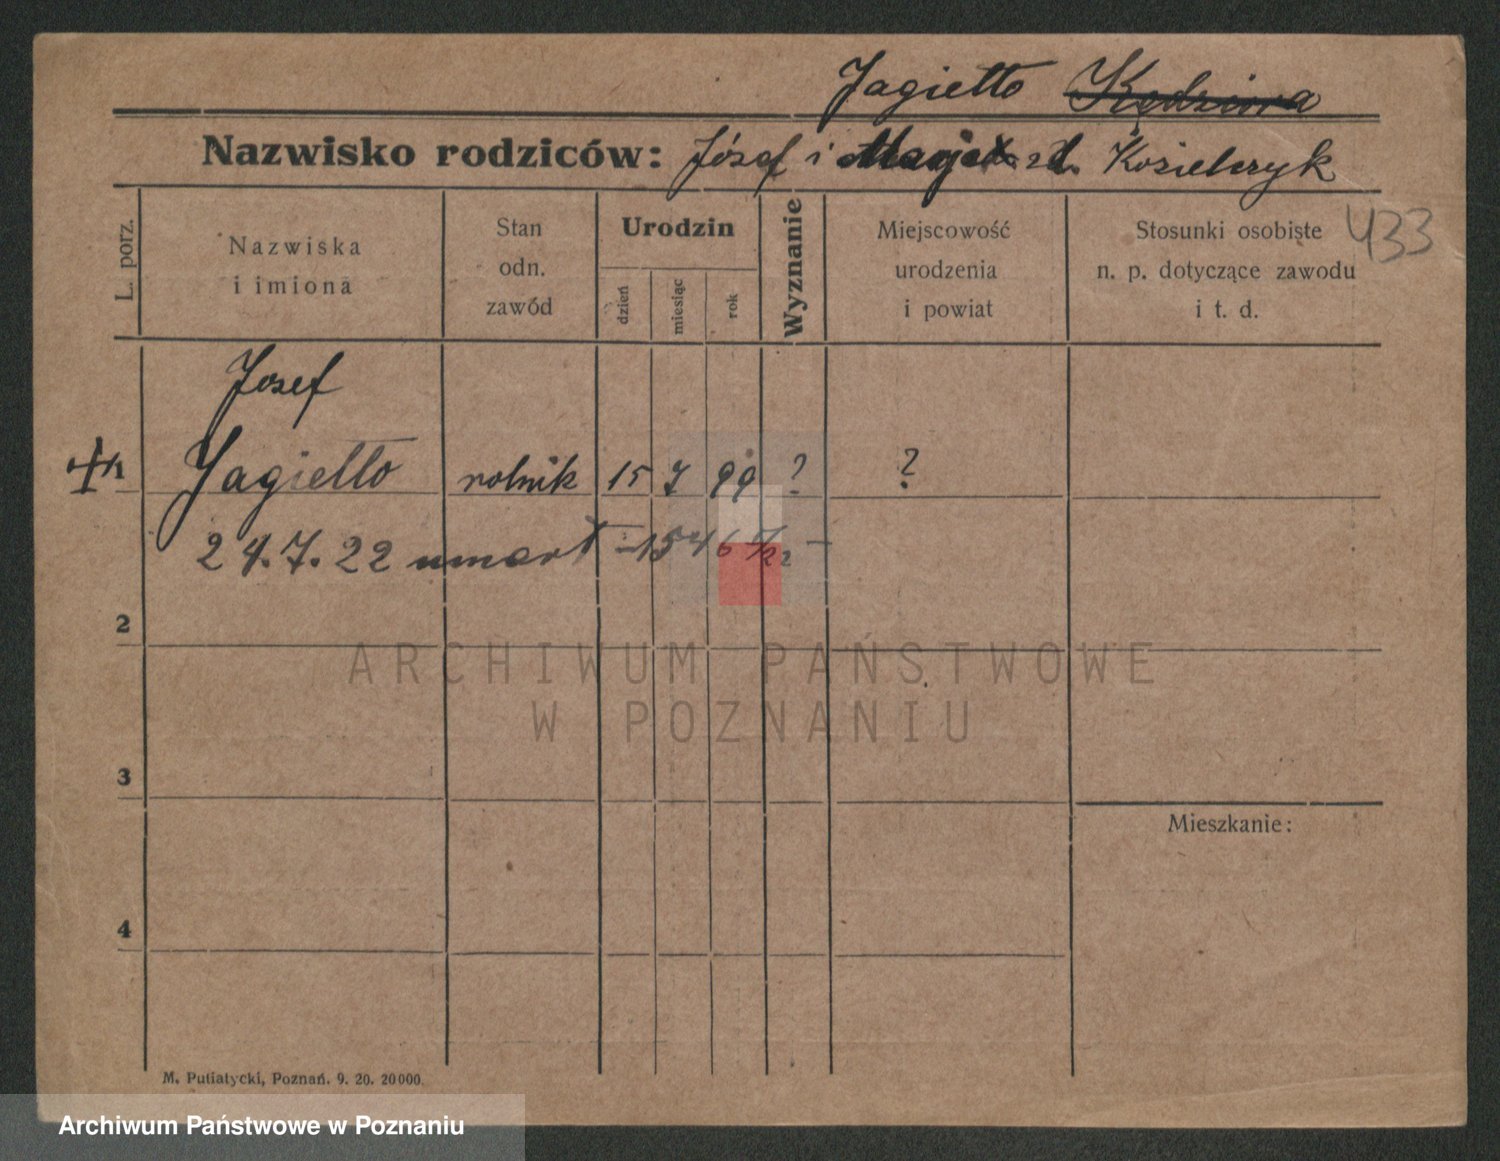 Jagiełło Kędziora
Nazwisko rodziców: Józef i z d. Kozielczyk
433
L. porz.
Nazwiska
i imiona
Stan
odn.
zawód
Urodzin
dzień
miesiąc
rok
Wyznanie
Miejscowość
urodzenia
i powiat
Stosunki osobiste
n. p. dotyczące zawodu
i t. d.
Josef
1 Jagiełło rolnik 15 7 99 ? ?
24.7.22 umarł - 1546/22 -
2
3
Mieszkanie:
4
M. Putiatycki, Poznań. 9. 20. 20000.
ARCHIWUM PAŃSTWOWE
W POZNANIU
Archiwum Państwowe w Poznaniu